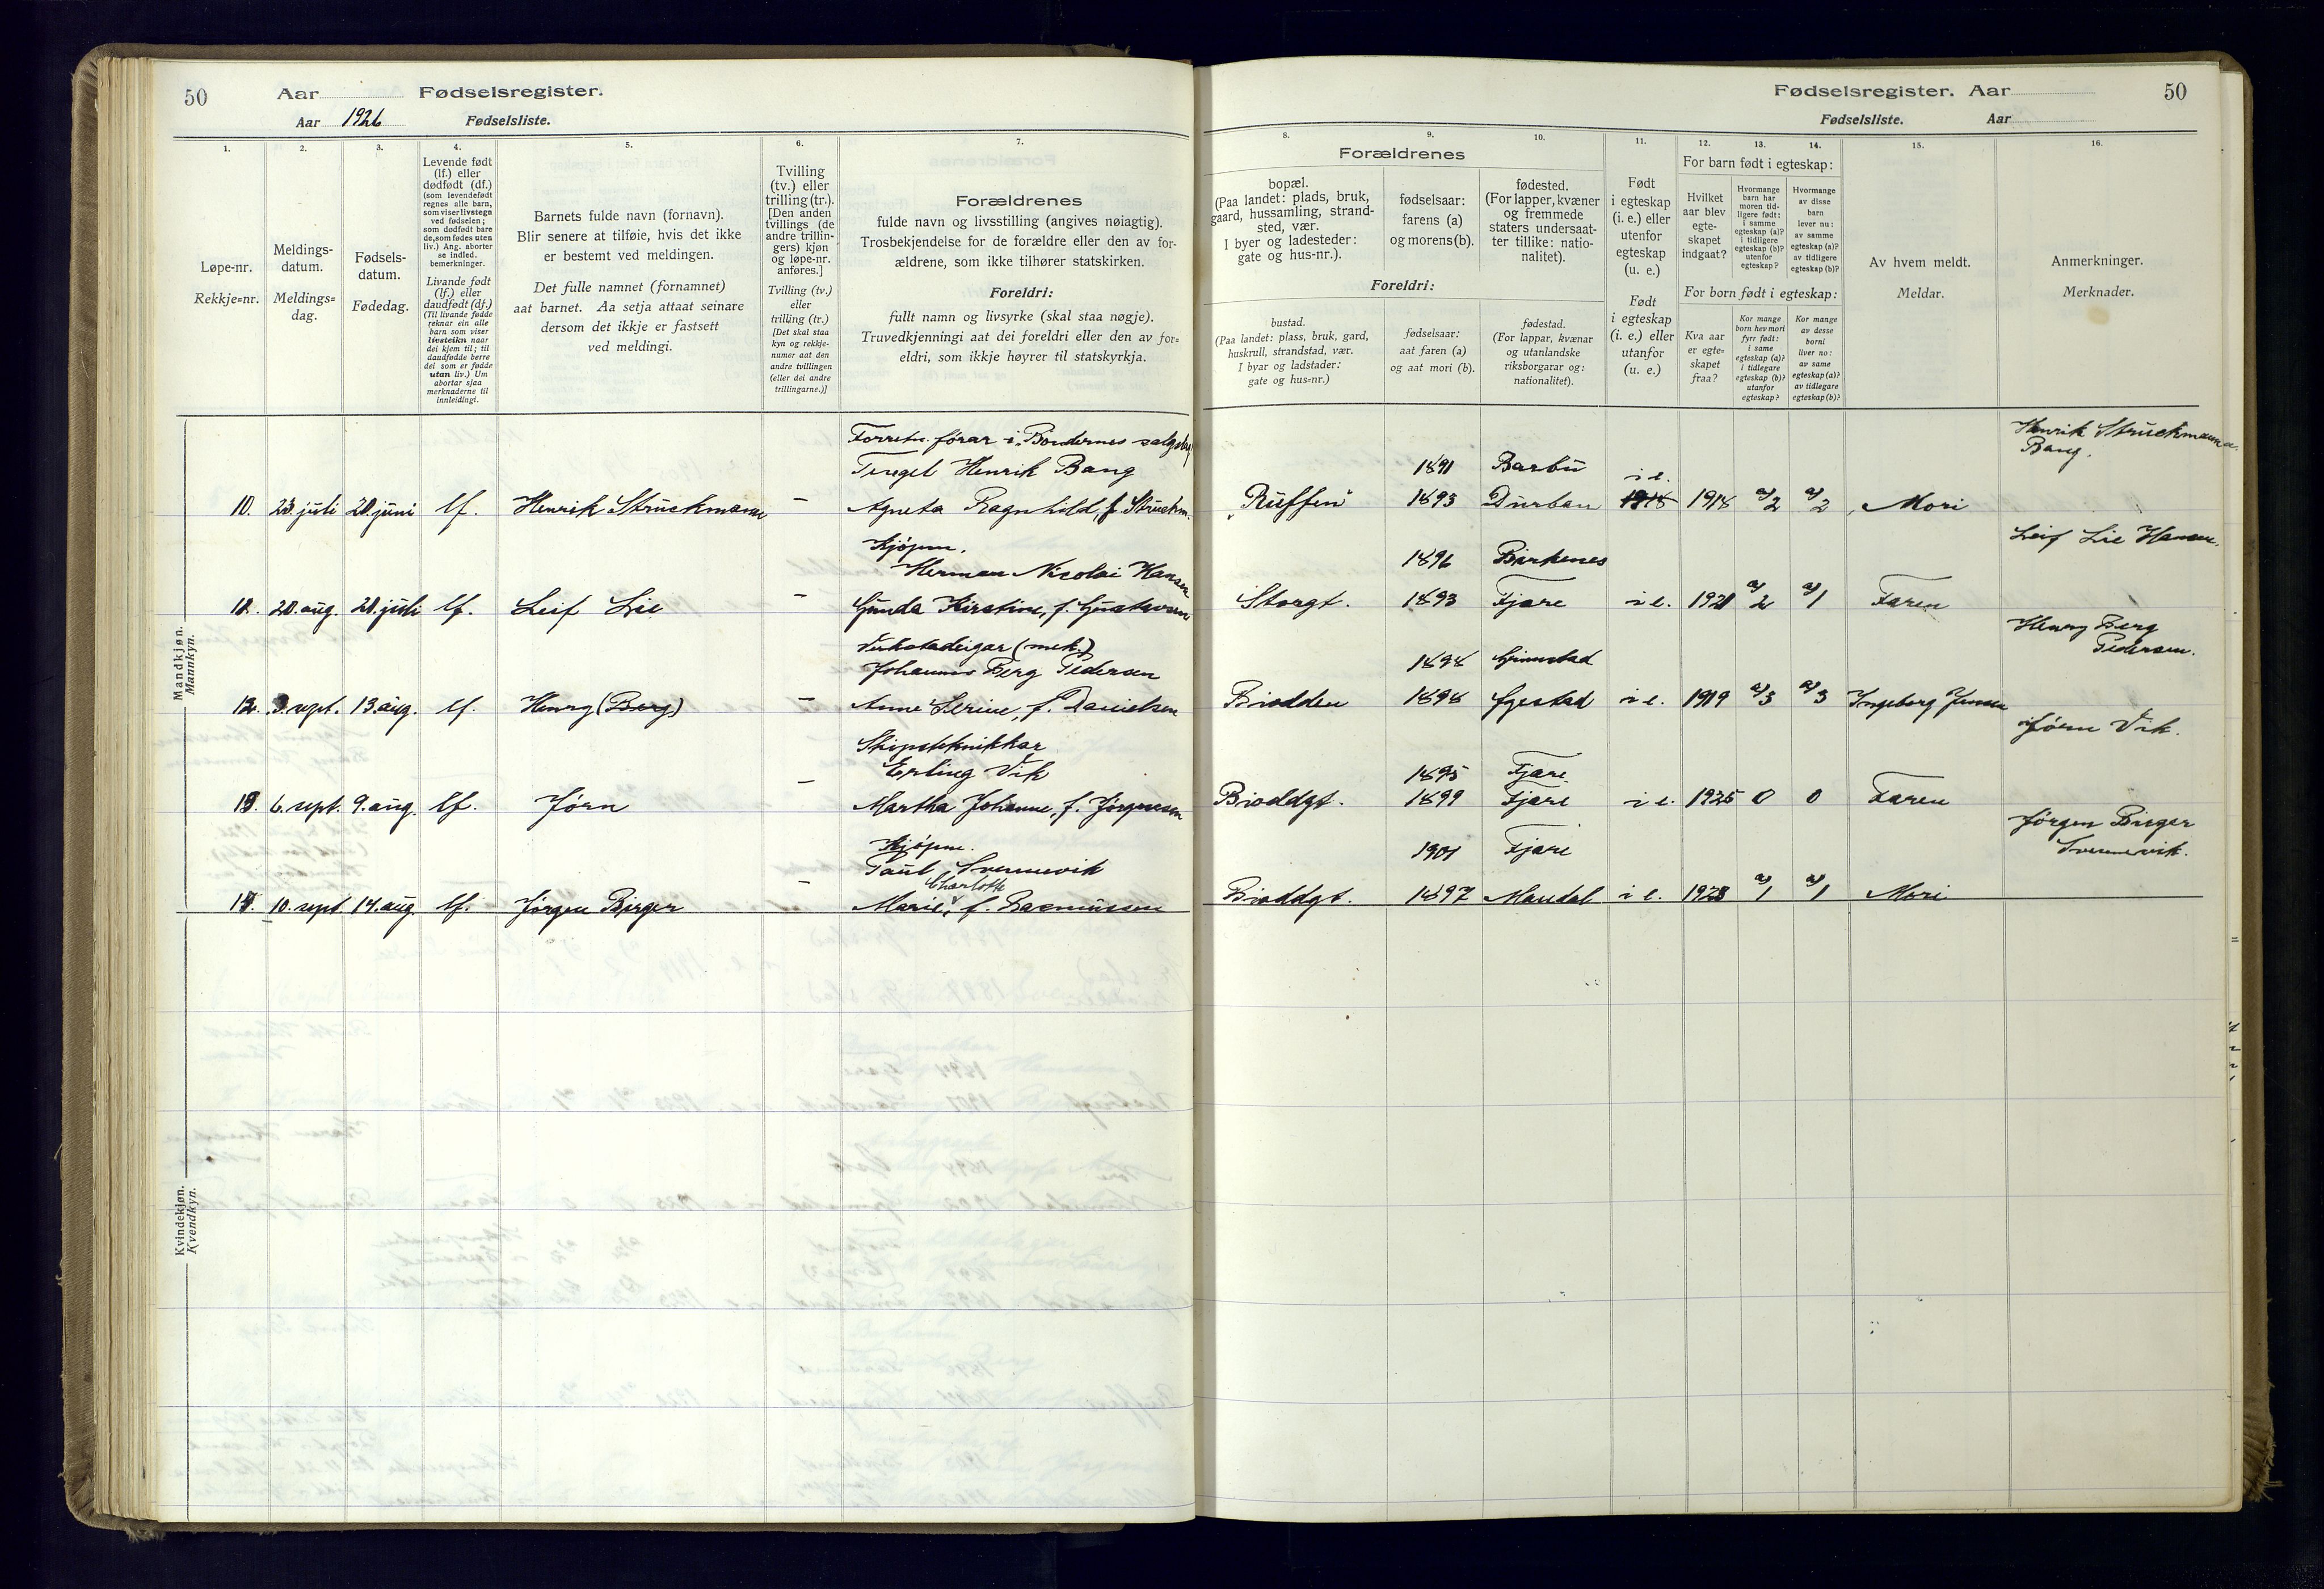 50 Aar Fødselsregister.
Aar 1926 Fødselsliste.
1.
Løpe-nr.
Rekkje=nr.
2.
Meldings-
datum.
Meldings=
dag.
3.
Fødsels-
datum.
Fødedag.
4.
Levende født
(lf.) eller
dødfødt (df.)
(som levendefødt
regnes alle barn,
som viser livstegn
ved fødselen;
som dødfødt bare
de, som fødes uten
liv.) Ang. aborter
se indled.
bemerkninger.
Livande født
(lf.) eller
daudfødt (df.)
(Til livande fødde
reknar ein alle
barn som viser
livsteikn naar
dei kjem til; til
daudfødde berre
dei som er fødde
utan liv.) Um
abortar sjaa
merknaderne til
innleidingi.
5.
Barnets fulde navn (fornavn).
Blir senere at tilføie, hvis det ikke
er bestemt ved meldingen.
Det fulle namnet (fornamnet)
aat barnet. Aa setja attaat seinare
dersom det ikkje er fastsett
ved meldingi.
6.
Tvilling
(tv.) eller
trilling (tr.).
[Den anden
tvillings (de
andre trillin-
gers) kjøn
og løpe-nr.
anføres.]
Tvilling (tv.)
eller
trilling (tr.)
[Det skal staa
kyn og rekkje-
numer aat den
andre tvillingen
(eller dei andre
trillingarne.)]
7.
Forældrenes
fulde navn og livsstilling (angives nøiagtig).
Trosbekjendelse for de forældre eller den av for-
ældrene, som ikke tilhører statskirken.
Foreldri:
fullt namn og livsyrke (skal staa nøgje).
Truvedkjenningi aat dei foreldri eller den av for=
eldri, som ikkje høyrer til statskyrkja.
Mandkjøn.
Mannkyn.
Forretn. förar i Böndernes salgslag
Tengel Henrik Bang
10. 23. juli 20. juni lf. Henrik Struckmann – Agneta Ragnhild, f. Struckm.
Kjöpm.
Herman Nicolai Hansen
11. 20. aug. 20. juli lf. Leif Lie – Gunda Kirstine, f. Gustavsen
Verkstadeigar (mek.)
Johannes Berg Pedersen
12. 3. sept. 13. aug. lf. Henry (Berg) – Anne Serine, f. Danielsen
Skipsteknikkar
Erling Vik
13. 6. sept. 9. aug. lf. Jörn – Martha Johanne, f. Jörgensen
Kjöpm.
Paul Svennevik
Charlotte
14. 10. sept. 14. aug. lf. Jörgen Birger – Marie, f. Rasmussen
Kvindekjøn.
Kvendkyn.
Fødselsregister. Aar 50
Fødselsliste. Aar
8. 9. 10.
Forældrenes
bopæl.
(Paa landet: plads, bruk,
gaard, hussamling, strand-
sted, vær.
I byer og ladesteder:
gate og hus-nr.).
fødselsaar:
farens (a)
og morens (b).
fødested.
(For lapper, kvæner
og fremmede
staters undersaat-
ter tillike: natio-
nalitet).
Foreldri:
bustad.
(Paa landet: plass, bruk, gard,
huskrull, strandstad, vær.
I byar og ladstader:
gate og hus=nr.)
fødselsaar:
aat faren (a)
og aat mori (b).
fødestad.
(For lappar, kvænar
og utanlandske
riksborgarar og:
nationalitet).
11.
Født
i egteskap
(i. e.) eller
utenfor
egteskap
(u. e.)
Født
i egteskap
(i. e.) eller
utanfor
(u. e.)
12. 13. 14.
For barn født i egteskap:
Hvilket
aar blev
egte-
skapet
indgaat?
Hvormange
barn har
moren tid-
ligere født:
i samme
egteskap (a)?
i tidligere
egteskap (b)?
utenfor
egteskap?
Hvormange
av disse
barn
lever nu:
av samme
egteskap (a)?
av tidligere
egteskap (b)?
For born født i egteskap:
Kva aar
er egte=
skapet
fraa?
Kor mange
born hev mori
fyrr født:
i same
egteskap (a)?
i tidlegare
egteskap (b)?
utanfor
egteskap?
Kor mange
av desse
borni
liver no:
av same
egteskap (a)?
av tidlegare
egteskap (b)?
15.
Av hvem meldt.
Meldar.
16.
Anmerkninger.
Merknader.
Henrik Struckmann
Bang.
1891 Barbu i e.
"Ruffen" 1893 Durban 1918 1918 a) 2 a) 2 Mori
Leif Lie Hansen.
1896 Birkenes
Storgt. 1893 Fjære i e. 1921 a) 2 a) 1 Faren
Henry Berg
Pedersen.
1898 Grimstad
Biodden 1898 Egestad i e. 1919 a) 3 a) 3 Ingeborg Jensen
Jörn Vik.
1895 Fjære
Bioddgt. 1899 Fjære i e. 1925 0 0 Faren
Jörgen Birger
Svennevik.
1901 Fjære
Bioddgt. 1897 Mandal i e. 1923 a) 1 a) 1 Mori